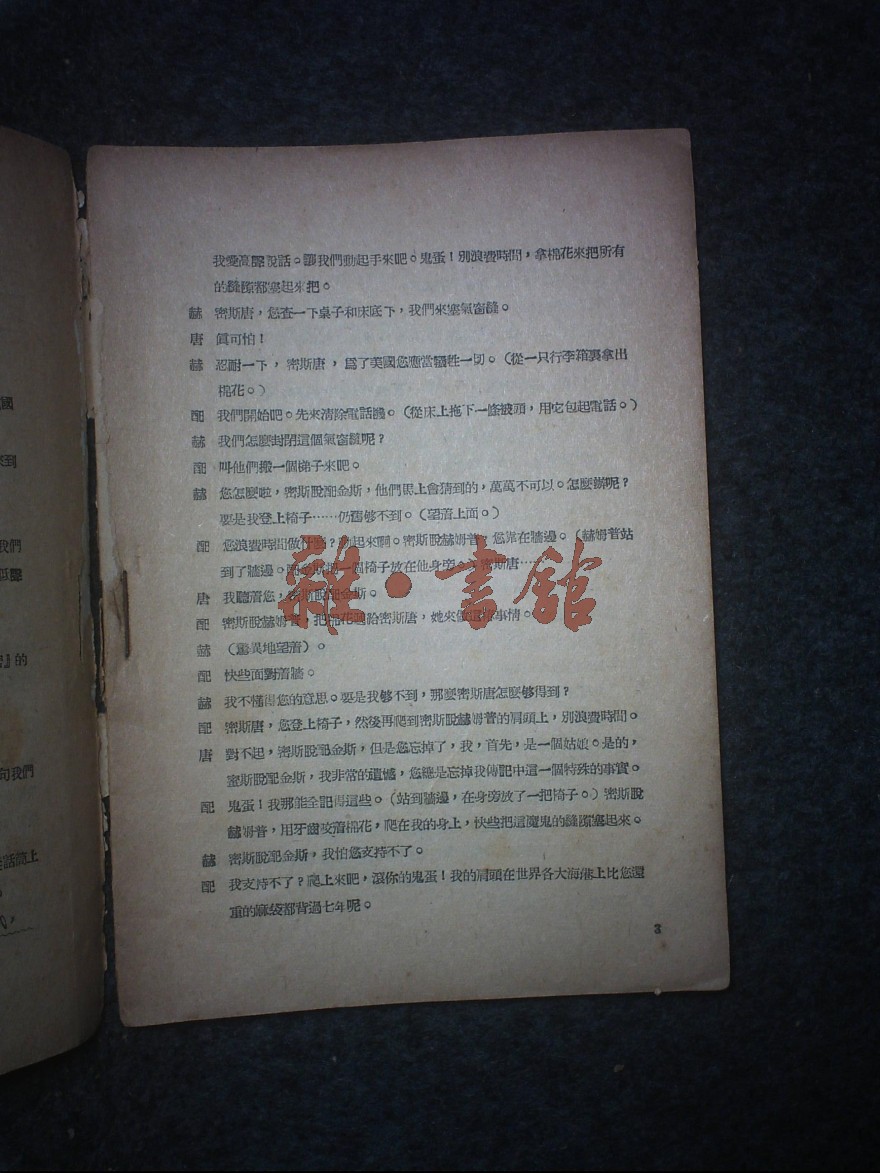 國
來到
我們
低聲
』的
句我們
話筒上
我愛高聲說話。讓我們動起手來吧。鬼蛋!別浪費時間,拿棉花來把所有
的縫隙都塞起來把。
赫 密斯唐,您查一下桌子和床底下,我們來塞氣窗縫。
唐 眞可怕!
赫 忍耐一下,密斯唐,爲了美國您應當犧牲一切。(從一只行李箱裏拿出
棉花。)
配 我們開始吧。先來清除電話機。(從床上拖下一條被頭,用它包起電話。)
赫 我們怎麼封閉這個氣窗縫呢?
配 叫他們搬一個梯子來吧。
赫 您怎麼啦,密斯脫配金斯,他們馬上會猜到的,萬萬不可以。怎麼辦呢?
要是我登上椅子……仍舊够不到。(望着上面。)
配 您浪費時間做什麼?動起來啊。密斯脫赫姆普?您靠在牆邊。(赫姆普站
到了牆邊。配金斯搬一個椅子放在他身旁。)密斯唐……
唐 我聽着您,密斯脫配金斯。
配 密斯脫赫姆普,把棉花遞給密斯唐,她來做這樁事情。
赫 (驚異地望着)。
配 快些面對着牆。
赫 我不懂得您的意思。要是我够不到,那麼密斯唐怎麼够得到?
配 密斯唐,您登上椅子,然後再爬到密斯脫赫姆普的肩頭上,別浪費時間。
唐 對不起,密斯脫配金斯,但是您忘掉了,我,首先,是一個姑娘。是的,
蜜斯脫配金斯,我非常的遺憾,您總是忘掉我傳記中這一個特殊的事實。
配 鬼蛋!我那能全記得這些。(站到牆邊,在身旁放了一把椅子。)密斯脫
赫姆普,用牙齒咬着棉花,爬在我的身上,快些把這魔鬼的縫隙塞起來。
赫 密斯脫配金斯,我怕您支持不了。
配 我支持不了?爬上來吧,滾你的鬼蛋!我的肩頭在世界各大海港上比您還
重的麻袋都背過七年呢。
3
雜·書館